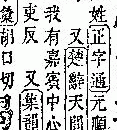 姓正字通元順
又楚辭天問
我有嘉賓中心
吏反又集韻
胡口切